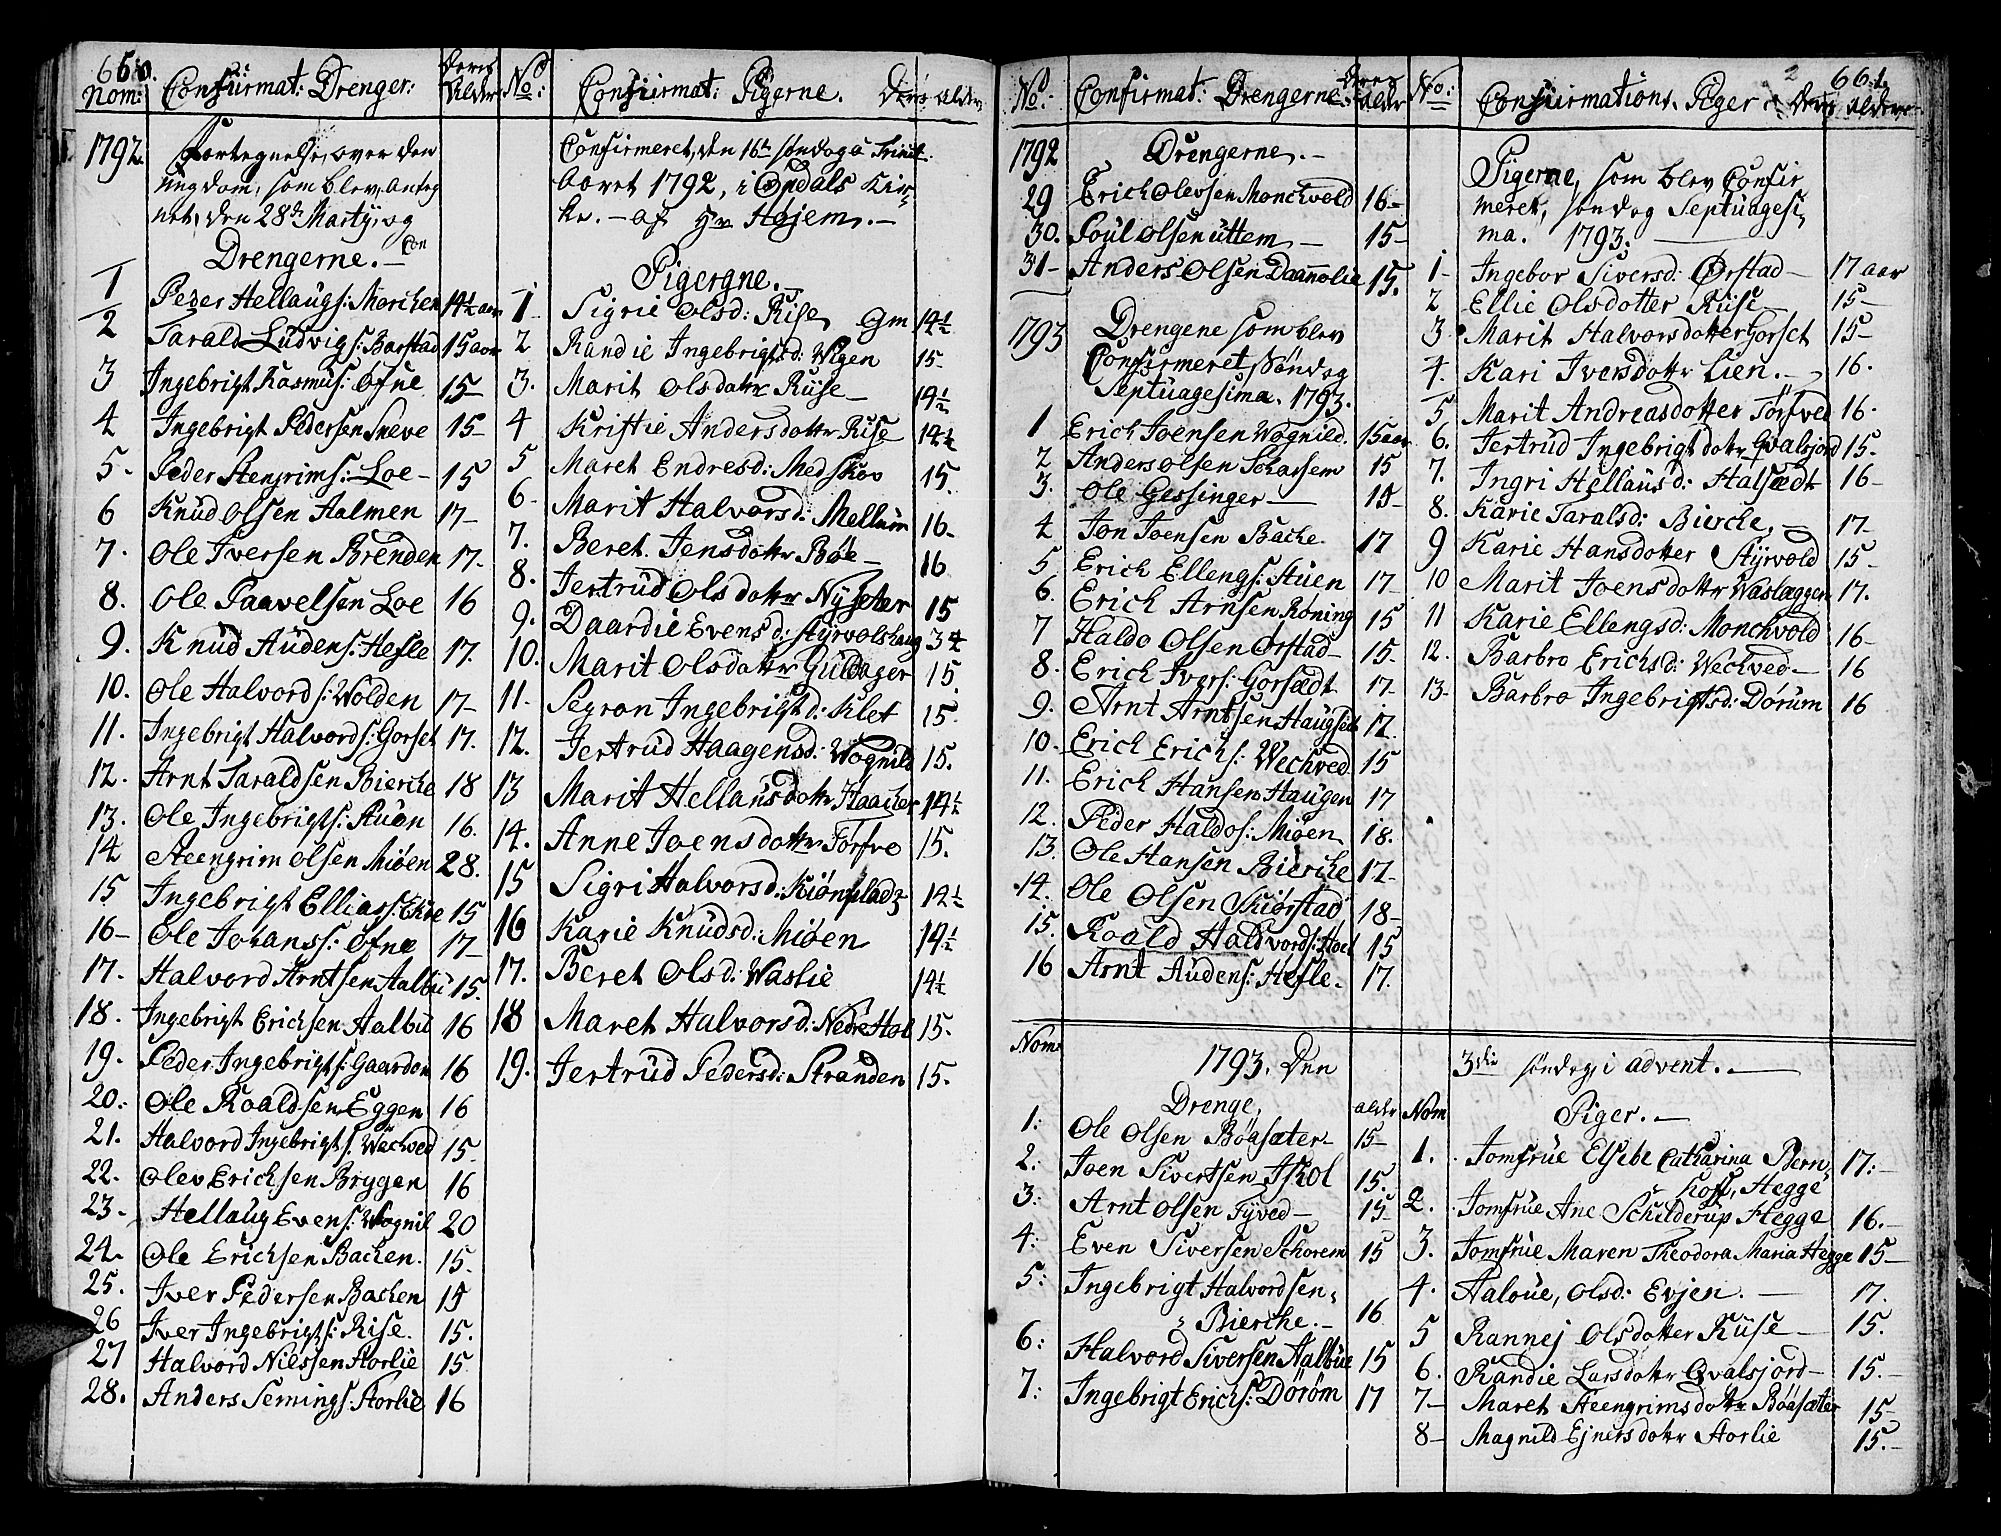 660.
Nom: Confirmat: Drenger: Deres Alder
1792. Fortegnelse, over den
ungdom, som blev anteg
net, den 28de Martÿ, og
Con
Drengerne. —
1 Peder Hellaugs: Morchen 14½ aar
2 Tarald Ludvigs: Barstad 15 aar
3 Ingebrigt Rasmus: Ofne 15—
4 Ingebrigt Pedersen Sneve 15—
5. Peder Stengrims: Loe — 15
6 Knud Olsen Aalmen 17—
7. Ole Iversen Brenden 17.
8. Ole Paavelsen Loe 16
9. Knud Audens: Hefle 17.
10. Ole Halvords: Wolden 17—
11. Ingebrigt Halvords: Gorset 17.
12. Arnt Taraldsen Bierche 18
13. Ole Ingebrigts: Stuen 16.
14 Steengrim Olsen Miøen 28.
15 Ingebrigt Elliass: Ekre 15
16— Ole Johanss: Ofne 17—
17. Halvord Arntsen Aalbu 15.
18. Ingebrigt Erichsen Aalbu 16
19. Peder Ingebrigts: Gaarden 16
20: Ole Roaldsen Eggen 16
21. Halvord Ingebrigts: Wechved 15
22. Olev Erichsen Bryggen 16
23. Hellaug Evens: Wognil 20
24. Ole Erichsen Bachen. 15.
25. Iver Pedersen Bachen 15
26 Iver Ingebrigts: Rise. 15.
27 Halvord Nilssen Storlie 15.
28. Anders Semings: Storlie 16
No: Confirmat: Pigerne. Deres alder
Confirmeret, den 16de søndag a Trinit:
aaret 1792, i Opdals Kir-
ke. — af Hr Højem. —
Pigergne. —
1 Sigrie Olsd: Rise, gm 14½
2 Randie Ingebrigtsd: Wigen 15
3. Marit Olsdattr Ruse — 14½
4 Kristie Andersdattr Rise 14½
5 Maret Endresd: Medskov 15.
6. Marit Halvorsd: Mellum 16—
7. Beret Jensdattr Bøe — 16
8. Jertrud Olsdattr Nÿseter 15
9. Daardie Evensd: Styrvolshaug 34
10. Marit Olsdattr Guldager 15
11. Segron Ingebrigtd: Klet 15.
12. Jertrud Haagensd: Wognild 15.
13 Marit Hellausdattr Haacher 14½
14. Anne Joensdattr Torfve 15.
15 Sigri Halvorsd: Kiønpladz 14½
16 Karie Knudsd: Miøen 14½
17. Beret Olsd: Waslie 14½
18 Maret Halvorsd: Nedre Hol 15.
19. Jertrud Pedersd: Stranden 15.
No: Confirmat: Drengerne: Deres alder
1792 Drengerne. —
29 Erich Olevsen Monchvold 16—
30. Poul Olsen Uttem — 15—
31— Anders Olsen Daannolie 15.
1793 Drengene som blev
Confirmeret, Søndag
Septuagesima. 1793.
1 Erich Joensen Wognild. 15 aar
2. Anders Olsen Scharsem 15
3. Ole Gessinger — 15—
4 Jon Joensen Bache. 17
5 Erich Ellengs: Stuen 17—
6. Erich Arnsen Røning 15
7 Haldo Olsen Ørstad — 15—
8. Erich Ivers: Gorsædt 17—
9. Arnt Arntsen Haugset 17.
10. Erich Erichs: Wechved 15
11. Erich Hansen Haugen 17
12. Peder Haldos: Miøen 18.
13. Ole Hansen Bierche 17—
14. Ole Olsen Skiørstad 18—
15. Roald Haldvords: Hoel 15
16 Arnt Audens: Hefle. 17.
2 661.
No: Confirmations, Piger Deres Alder
Pigerne, som blev Confir
meret, søndag Septuagesi,
ma. 1793.
1— Ingebor Siversd: Ørstad — 17 aar
2 Ellie Olsdotter Ruse — 15—
3. Marit Halvorsdotter Gorset 15—
4. Kari Iversdottr Lien. — 16.
5 Marit Andreasdotter Torfved 16.
6. Jertrud Ingebrigtdotr Qvalsjord 15.
7. Ingri Hellausd: Halsædt 16—
8. Karie Taralsd: Bierche, — 17—
9 Karie Hansdotter Styrvold 15—
10 Marit Joensdottr Waslæggen 17.
11 Karie Ellengsd: Monchvold 16—
12. Barbro Erichsd: Wechved — 16
13— Barbro Ingebrigtsd: Dørum 16
Nom 1793. Den 3die søndag, i advent. —
Drenge, alder
1: Ole Olsen Bøasæter — 15—
2: Joen Sivertsen Ishol 15.
3: Arnt Olsen Tÿved — 15
4: Even Siversen Schorem 15
5: Ingebrigt Halvordsen,
Bierche. — 16
6: Halvord Siversen Aalbue 15
7: Ingebrigt Erichs: Dørøm 17
Nom Piger. —
1. Jomfrue Elsebe Catharina Bern,
hoff, Hegge 17:—
2. Jomfrue Ane Schilderup Hegge 16.—
3. Jomfrue Maren Theodora Maria Hegge 15—
4. Aaloue, Olsd: Evjen. — 17.
5 Rannej Olsdotter Ruse — 15.
6. Randie Larsdottr Qvalsjord — 15.—
7— Maret Steengrimsdottr Bøasæter 15—
8— Magnild Ejnersdottr Storlie 15.—